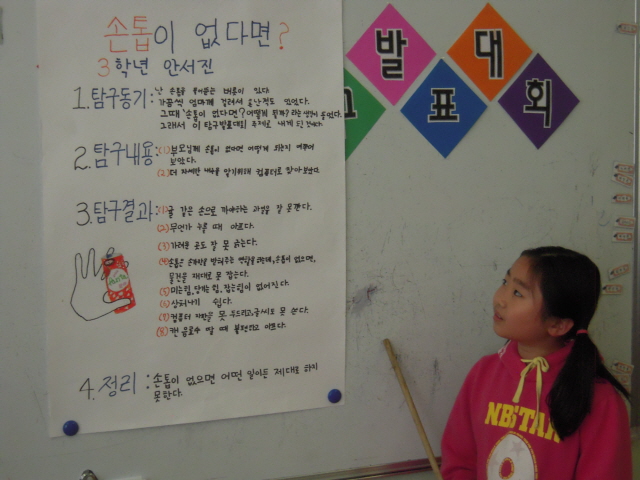 손톱이 없다면?
3학년 안서진
1.탐구동기: 난 손톱을 물어뜯는 버릇이 있다.
가끔씩 엄마께 걸려서 혼난적도 있었다.
그때 '손톱이 없다면? 어떻게 될까?' 라는 생각이 들었다.
그래서 이 탐구발표대회 주제로
2.탐구내용: (1) 부모님께 손톱이 없다면 어떻게 되는지 여쭈어
보았다.
(2) 더 자세한 내용을 알기위해 컴퓨터로 찾아보았다.
3.탐구결과: (1) 귤 같은 손으로 까야하는 과일을 잘 못깐다.
(2) 무언가 누를 때 아프다.
(3) 가려운 곳도 잘 못 긁는다.
(4) 손톱은 손가락을 받쳐주는 역할을 하는데, 손톱이 없으면,
물건을 제대로 못 잡는다.
(5) 미는힘, 당기는 힘, 잡는힘이 없어진다.
(6) 상처나기 쉽다.
(7) 컴퓨터 자판을 못 두드리고, 글씨도 못 쓴다.
(8) 캔 음료수 딸 때 불편하고 아프다.
4.정리: 손톱이 없으면 어떤 일이든 제대로 하지
못한다.
발대
표회
NBSTAR